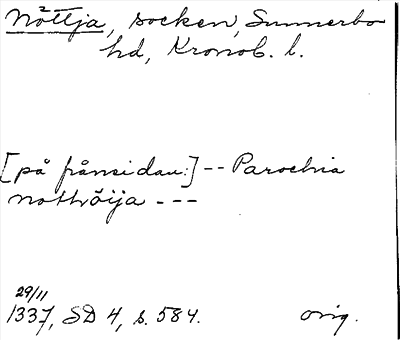 Nöttja, socken, Sunnerbo
hd, Kronob. l.
[på frånsidan:] -- Parochia
nothröija ---
29/11
1337, SD 4, s. 584. orig.